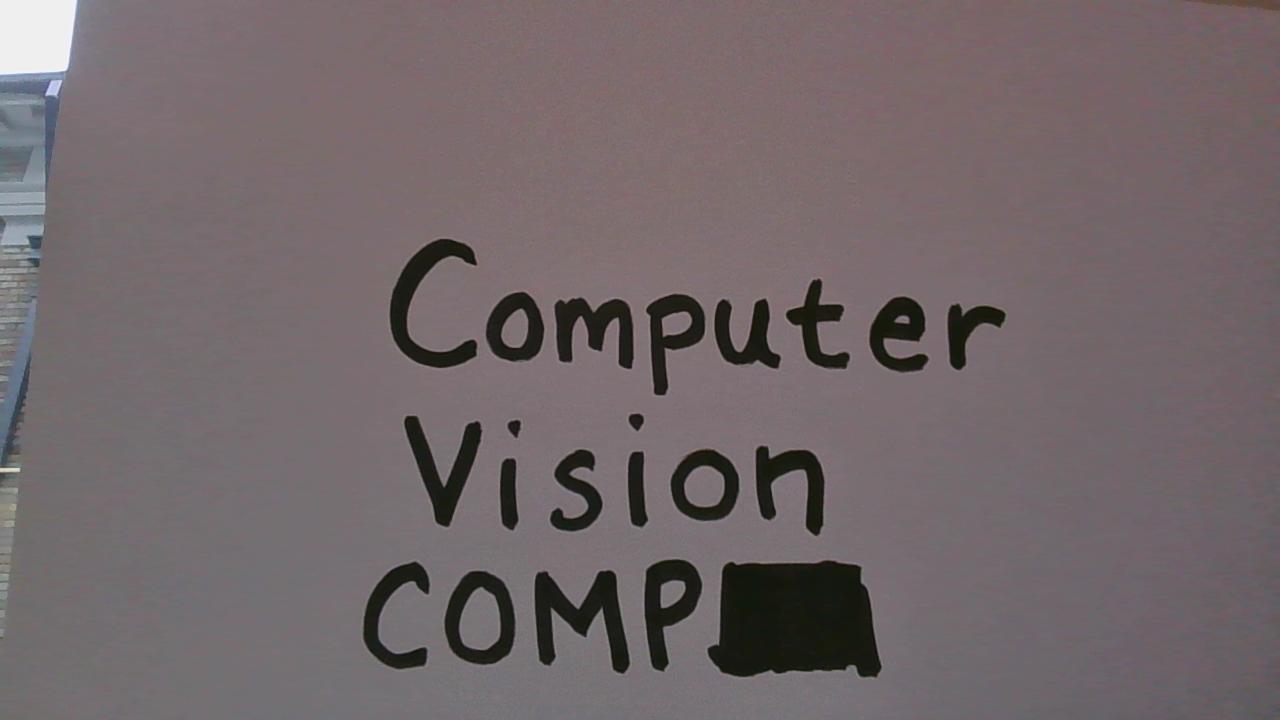 Computer
Vision
COMP